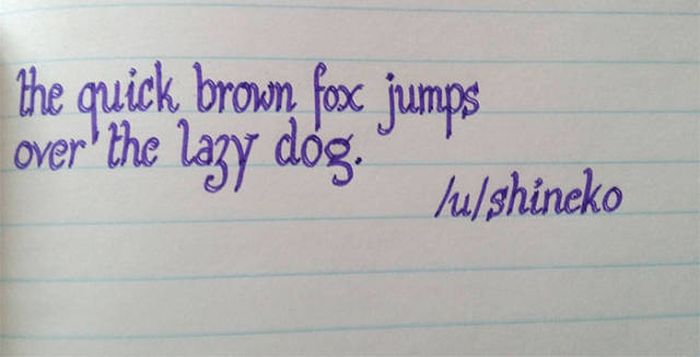 the quick brown fox jumps
over the lazy dog.
/u/shineko